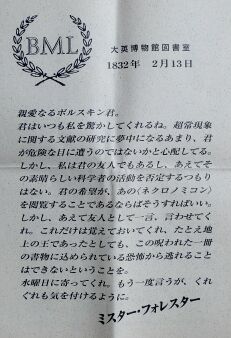 BML
大英博物館図書室
1832年 2月13日
親愛なるボルスキン君。
君はいつも私を驚かしてくれるね。超常現象
に関する文献の研究に夢中になるあまり、君
が危険な目に遭うのではないかと心配してる。
しかし、私は君の友人でもあるし、あえてそ
の素晴らしい科学者の活動を否定するつもり
はない。君の希望が、あの〈ネクロノミコン〉
を閲覧することであるならばそうすればいい。
しかし、あえて友人として一言、言わせてく
れ。これだけは覚えておいてくれ、たとえ地
上の王であったとしても、この呪われた一冊
の書物に込められている恐怖から逃れること
はできないということを。
水曜日に寄ってくれ。もう一度言うが、くれ
ぐれも気を付けるように。
ミスター・フォレスター